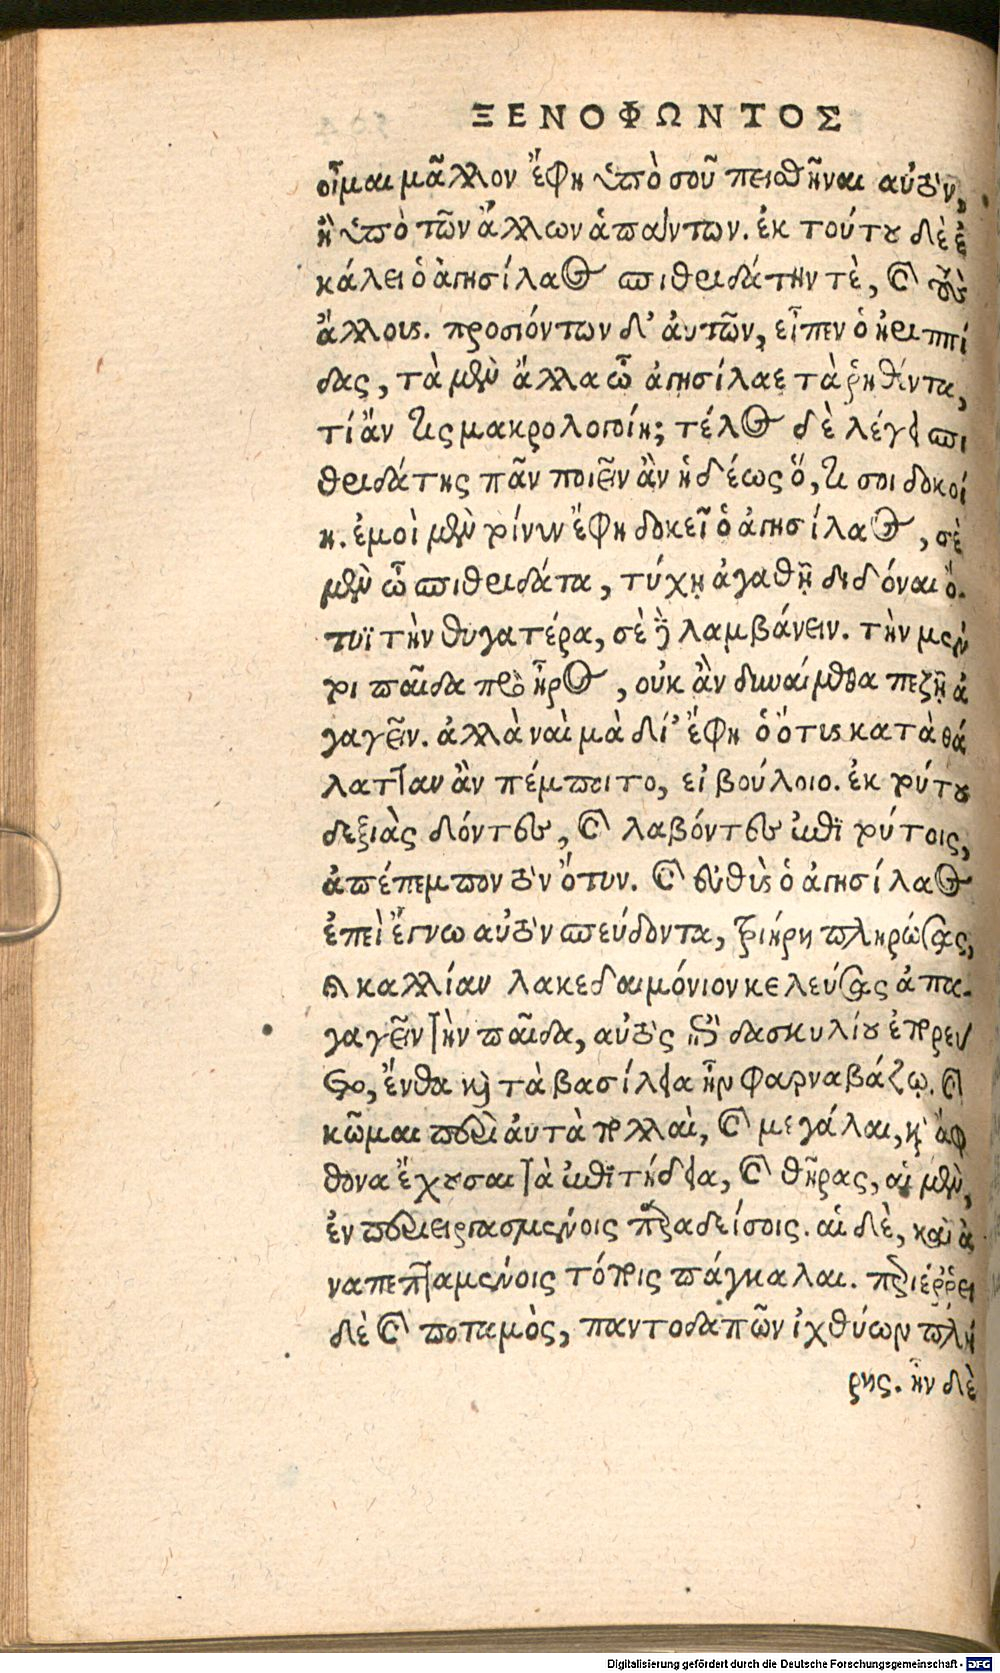 ΞΕΝΟΦΩΝΤΟΣ
οἶμαι μᾶλλον ἔφη ὑπὸ σοῦ πεισθῆναι αὐτὸν,
ἢ ὑπὸ τῶν ἄλλων ἁπάντων. ἐκ τούτου δὲ ἐ
κάλει ὁ ἀγησίλαος σπιθριδάτην τὲ, καὶ τοὺς
ἄλλους. προσιόντων δ' αὐτῶν, εἶπεν ὁ ἡριππί
δας, τὰ μὲν ἄλλα ὦ ἀγησίλαε τὰ ῥηθέντα,
τί ἄν τις μακρολογοίη; τέλος δὲ λέγει σπι
θριδάτης πᾶν ποιεῖν ἂν ἡδέως ὅ, τι σοι δοκοί
η. ἐμοὶ μὲν τοίνυν ἔφη δοκεῖ ὁ ἀγησίλαος, σὲ
μὲν ὦ σπιθριδάτα, τύχῃ ἀγαθῇ διδόναι ὄ-
τυϊ τὴν θυγατέρα, σὲ δὲ λαμβάνειν. τὴν μέν
τοι παῖδα πρὸ ἦρος, οὐκ ἂν δυναίμεθα πεζῇ ἀ
γαγεῖν. ἀλλὰ ναὶ μὰ δί' ἔφη ὁ ὄτυς κατὰ θά
λατταν ἂν πέμποιτο, εἰ βούλοιο. ἐκ τούτου
δεξιὰς δόντες, καὶ λαβόντες ἐπὶ τούτοις,
ἀπέπεμπον τὸν ὄτυν. καὶ εὐθὺς ὁ ἀγησίλαος
ἐπεὶ ἔγνω αὐτὸν σπεύδοντα, τριήρη πληρώσας,
καὶ καλλίαν λακεδαιμόνιον κελεύσας ἀπα-
γαγεῖν τὴν παῖδα, αὐτὸς ἐπὶ δασκυλίου ἐπορεύ
ετο, ἔνθα καὶ τὰ βασίλεια ἦν φαρναβάζῳ. καὶ
κῶμαι περὶ αὐτὰ πολλαὶ, καὶ μεγάλαι, καὶ ἄφ
θονα ἔχουσαι τὰ ἐπιτήδεια, καὶ θῆρας, αἱ μὲν,
ἐν περιειργασμένοις παραδείσοις. αἱ δὲ, καὶ ἀ
ναπεπταμένοις τόποις πάγκαλαι. περιέρρει
δὲ καὶ ποταμὸς, παντοδαπῶν ἰχθύων πλή
ρης. ἦν δὲ
Digitalisierung gefördert durch die Deutsche Forschungsgemeinschaft - DFG